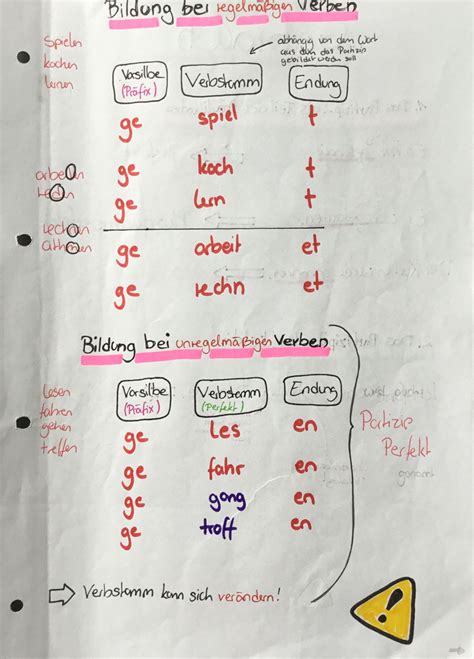 Bildung bei regelmäßigen Verben
spielen
kochen
lernen
abhängig von dem Wort
aus dem das Partizip
gebildet werden soll
Vorsilbe Verbstamm Endung
(Präfix)
ge spiel t
ge koch t
ge lern t
arbeiten
reden
rechnen
athmen
ge arbeit et
ge rechn et
Bildung bei unregelmäßigen Verben
lesen
fahren
gehen
treffen
Vorsilbe Verbstamm Endung
(Präfix) (Perfekt)
ge les en
ge fahr en
ge gang en
ge troff en
Partizip
Perfekt
genannt
⇨ Verbstamm kann sich verändern!
!